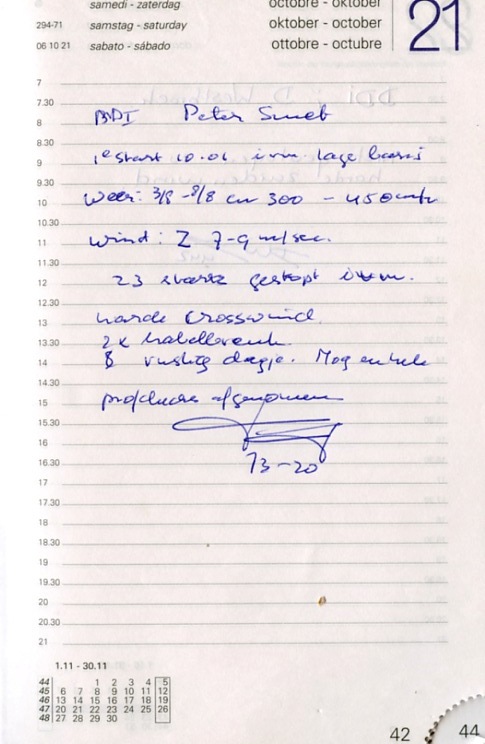 samedi - zaterdag
octobre - oktober
294-71
samstag - saturday
oktober - october
21
06 10 21
sabato - sábado
ottobre - octubre
7
7.30
DDI Peter Smeb
8
8.30
1e start 10.01 i.v.m. lage basis
9
9.30
weer: 3/8 - 8/8 cu 300 - 450 mtr
10
10.30
wind: Z 7-9 m/sec.
11
11.30
23 starts gestopt i.v.m.
12
12.30
harde crosswind
13
2x kabelbreuk
13.30
rustig dagje. Nog enkele
14
14.30
afgenomen
15
15.30
16
13-20
16.30
17
17.30
18
18.30
19
19.30
20
20.30
21
1.11 - 30.11
44 1 2 3 4 5
45 6 7 8 9 10 11 12
46 13 14 15 16 17 18 19
47 20 21 22 23 24 25 26
48 27 28 29 30
42
44